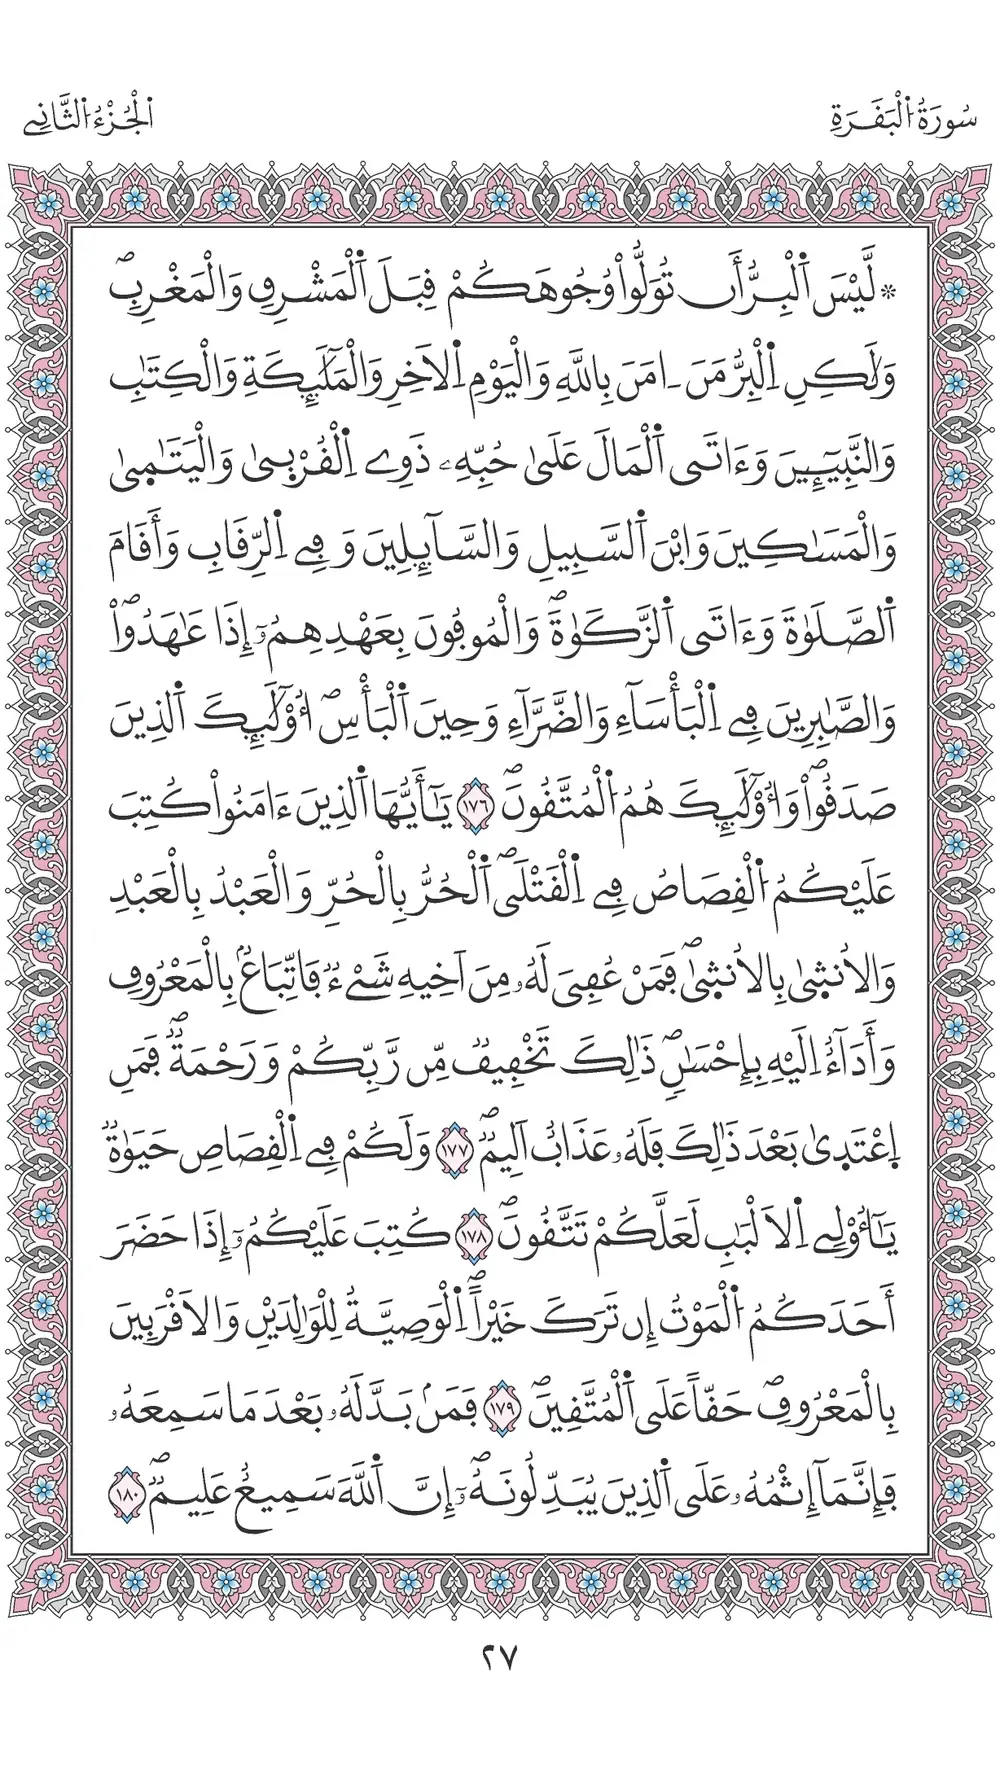 سُورَةُ اُ۬لْبَقَرَةِ
اَ۬لْجُزْءُ اُ۬لثَّانِے
۞ لَّيْسَ اَ۬لْبِرُّ أَن تُوَلُّواْ وُجُوهَكُمْ قِبَلَ اَ۬لْمَشْرِقِ وَالْمَغْرِبِۖ
وَلَٰكِنِ اِ۬لْبِرُّ مَنَ اٰمَنَ بِاللَّهِ وَالْيَوْمِ اِ۬لَاخِرِ وَالْمَلَٰٓئِكَةِ وَالْكِتَٰبِ
وَالنَّبِيٓـِٕينَ وَءَاتَى اَ۬لْمَالَ عَلَىٰ حُبِّهِۦ ذَوِے اِ۬لْقُرْبىٰ وَالْيَتَٰمىٰ
وَالْمَسَٰكِينَ وَابْنَ اَ۬لسَّبِيلِ وَالسَّآئِلِينَ وَفِے اِ۬لرِّقَابِ وَأَقَامَ
اَ۬لصَّلَوٰةَ وَءَاتَى اَ۬لزَّكَوٰةَۖ وَالْمُوفُونَ بِعَهْدِهِمُۥٓ إِذَا عَٰهَدُواْۖ
وَالصَّٰبِرِينَ فِے اِ۬لْبَأْسَآءِ وَالضَّرَّآءِ وَحِينَ اَ۬لْبَأْسِۖ أُوْلَٰٓئِكَ اَ۬لذِينَ
صَدَقُواْۖ وَأُوْلَٰٓئِكَ هُمُ اُ۬لْمُتَّقُونَۖ ١٧٦ يَٰٓأَيُّهَا اَ۬لذِينَ ءَامَنُواْ كُتِبَ
عَلَيْكُمُ اُ۬لْقِصَاصُ فِے اِ۬لْقَتْلَىۖ اَ۬لْحُرُّ بِالْحُرِّ وَالْعَبْدُ بِالْعَبْدِ
وَالُانثىٰ بِالُانثىٰۖ فَمَنْ عُفِيَ لَهُۥ مِنَ اَخِيهِ شَےْءٞ فَاتِّبَاعُۢ بِالْمَعْرُوفِ
وَأَدَآءٌ اِلَيْهِ بِإِحْسَٰنٖۖ ذَٰلِكَ تَخْفِيفٞ مِّن رَّبِّكُمْ وَرَحْمَةٞۖ فَمَنِ
اِ۪عْتَدىٰ بَعْدَ ذَٰلِكَ فَلَهُۥ عَذَابٌ اَلِيمٞۖ ١٧٧ وَلَكُمْ فِے اِ۬لْقِصَاصِ حَيَوٰةٞ
يَٰٓأُوْلِے اِ۬لَالْبَٰبِ لَعَلَّكُمْ تَتَّقُونَۖ ١٧٨ كُتِبَ عَلَيْكُمُۥٓ إِذَا حَضَرَ
أَحَدَكُمُ اُ۬لْمَوْتُ إِن تَرَكَ خَيْراًۖ اِ۬لْوَصِيَّةُ لِلْوَٰلِدَيْنِ وَالَاقْرَبِينَ
بِالْمَعْرُوفِۖ حَقّاً عَلَى اَ۬لْمُتَّقِينَۖ ١٧٩ فَمَنۢ بَدَّلَهُۥ بَعْدَ مَا سَمِعَهُۥ
فَإِنَّمَآ إِثْمُهُۥ عَلَى اَ۬لذِينَ يُبَدِّلُونَهُۥٓۖ إِنَّ اَ۬للَّهَ سَمِيعٌ عَلِيمٞۖ ١٨٠
٢٧